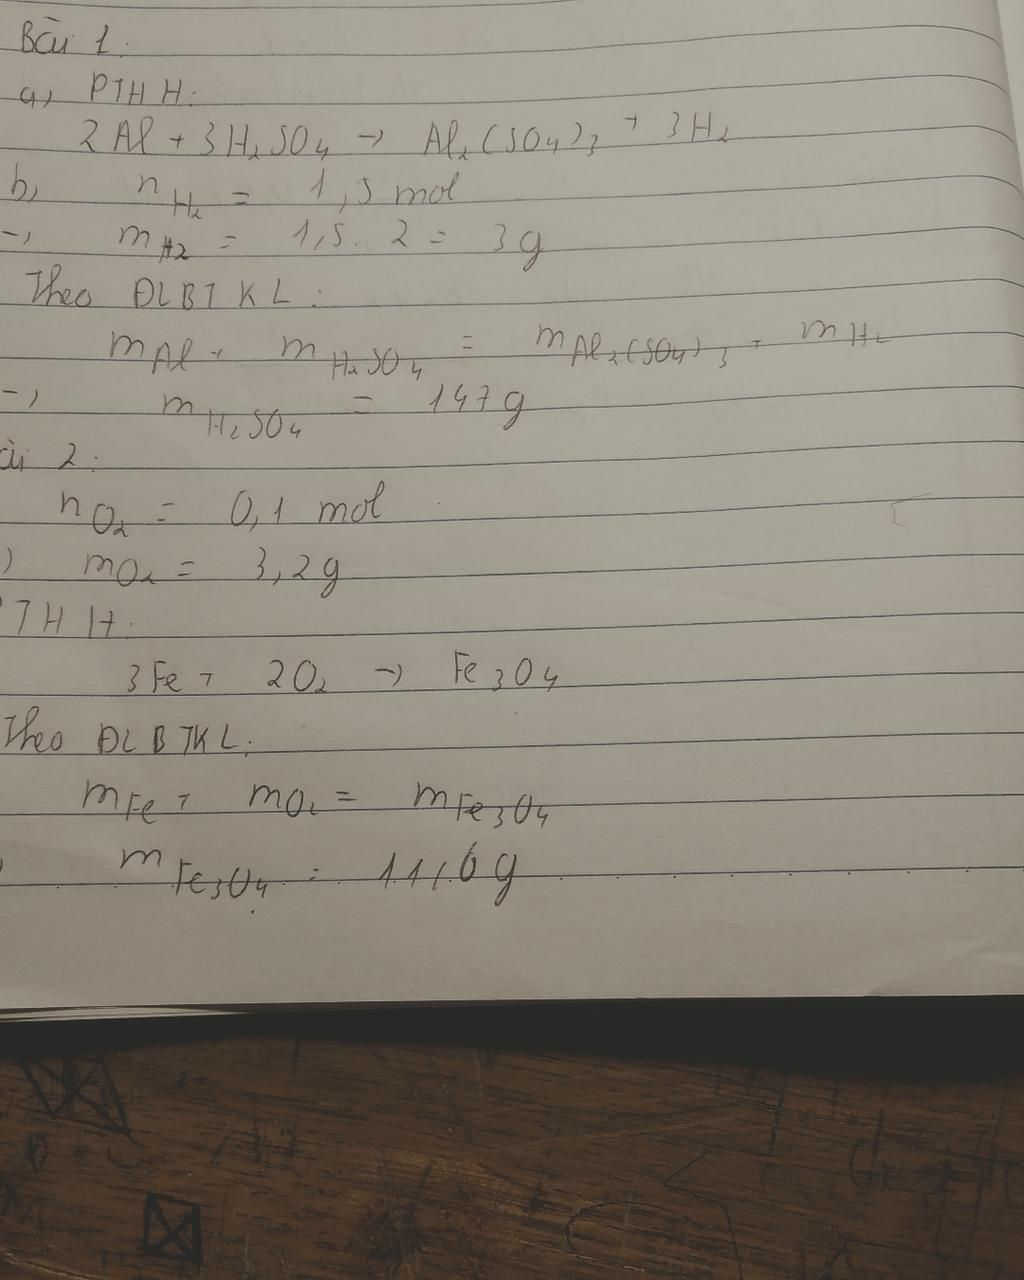 Bài 1:
a, PTHH:
2Al + 3H₂SO₄ → Al₂(SO₄)₃ + 3H₂
b, n H₂ = 1,5 mol
→ m H₂ = 1,5. 2 = 3g
Theo ĐLBTKL:
m Al + m H₂SO₄ = m Al₂(SO₄)₃ + m H₂
→ m H₂SO₄ = 147g
ài 2:
n O₂ = 0,1 mol
) m O₂ = 3,2g
PTHH:
3Fe + 2O₂ → Fe₃O₄
Theo ĐLBTKL:
m Fe + m O₂ = m Fe₃O₄
m Fe₃O₄ = 11,6g